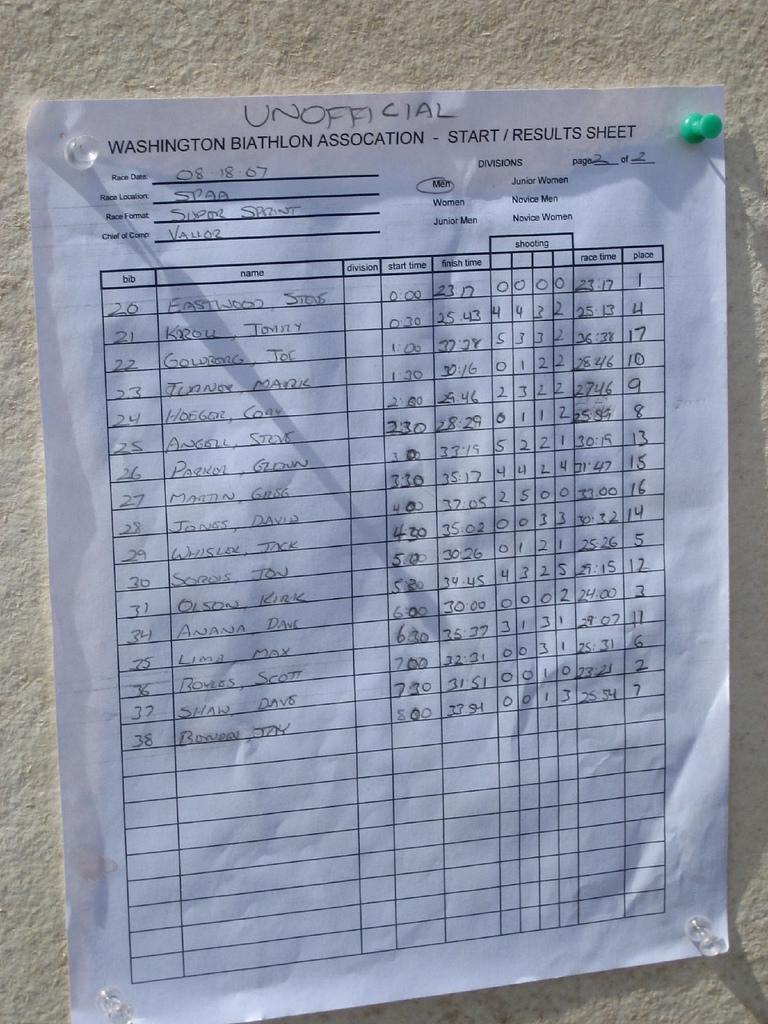 UNOFFICIAL
WASHINGTON BIATHLON ASSOCATION - START / RESULTS SHEET
Race Date: 08.18.07 DIVISIONS page 2 of 2
Race Location: SPAA Men Junior Women
Race Format: SUPER SPRINT Women Novice Men
Chief of Comp: VALLOR Junior Men Novice Women
shooting
bib name division start time finish time race time place
20 EASTWOOD, STEVE 0:00 23:17 0 0 0 0 23:17 1
21 KROLL, TOMMY 0:30 25:43 4 4 3 2 25:13 4
22 GOLDBERG, JOE 1:00 5 3 3 2 36:38 17
23 TURNER, MARK 1:30 30:16 0 1 2 2 28:46 10
24 HOEGER, CORY 2:00 29:46 2 3 2 2 27:46 9
25 ANGELL, STEVE 2:30 28:29 0 1 1 2 25:59 8
26 PARKER, GLENN 3:00 33:19 5 2 2 1 30:19 13
27 MARTIN, GREG 3:30 35:17 4 4 2 4 31:47 15
28 JONES, DAVID 4:00 37:05 2 5 0 0 33:00 16
29 WHISLER, JACK 4:30 35:02 0 0 3 3 30:32 14
30 JON 5:00 30:26 0 1 2 1 25:26 5
31 OLSON, KIRK 5:30 34:45 4 3 2 5 29:15 12
34 ANANA DAVE 6:00 30:00 0 0 0 2 24:00 3
35 LIMA MAX 6:30 35:37 3 1 3 1 29:07 11
36 ROYLES, SCOTT 7:00 32:31 0 0 3 1 25:31 6
37 SHAW, DAVE 7:30 31:51 0 0 1 0 23:21 2
38 BOWEN, JAY 8:00 33:54 0 0 1 3 25:54 7